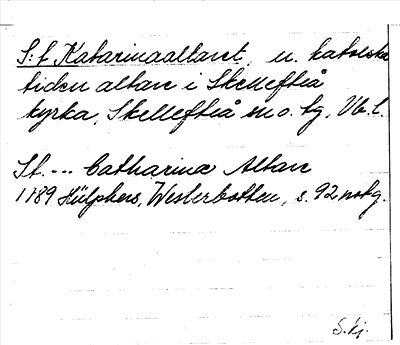 S:t Katarinaaltaret, u. katolska
tiden altare i Skellefteå
kyrka, Skellefteå sn o. tg, Vb. l.
St. --- Catharinæ Altare
1789 Hülphers, Westerbotten, s. 92 not g.
S. kj.